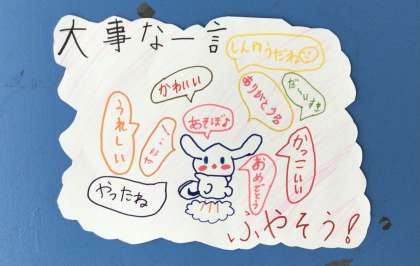 大事な一言
しんゆうだね
かわいい
ありがとうね
だーいすき
うれしい
すごい!
あそぼよ
かっこいい
おめでとう
やったね
ふやそう!